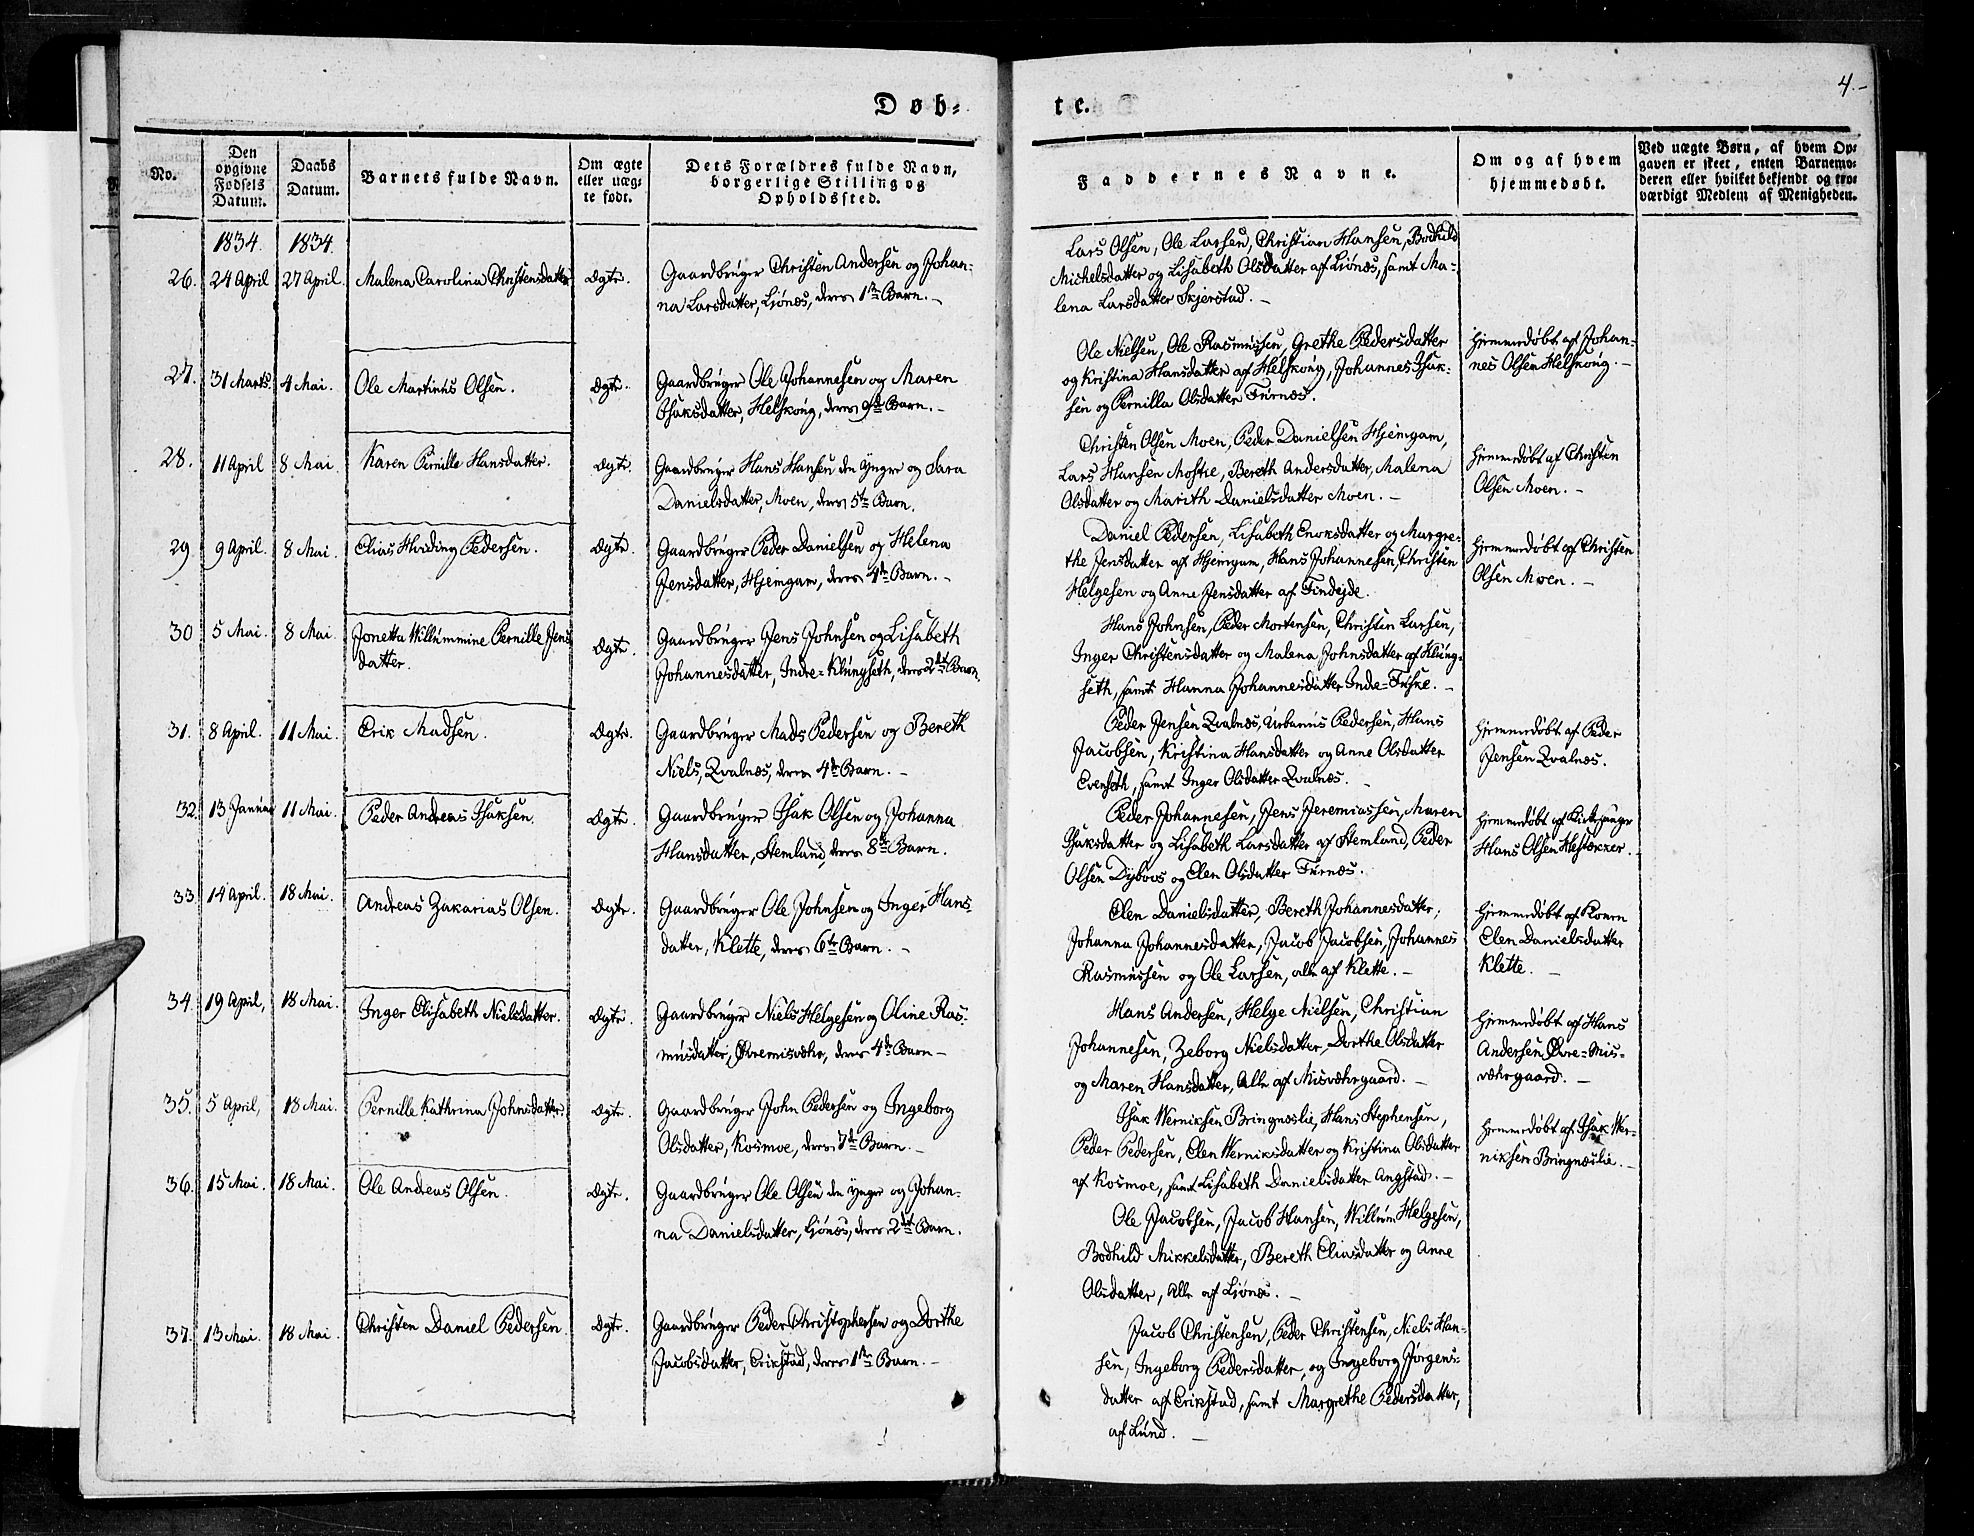 Døb-
No.
Den
opgivne
Fødsels
Datum.
Daabs
Datum.
Barnets fulde Navn.
Om ægte
eller uæg-
te født.
Dets Forældres fulde Navn,
borgerlige Stilling og
Opholdssted.
1834. 1834.
26. 24 April 27 April. Malena Carolina Christensdatter Ægte. Gaardbruger Christen Andersen og Johan-
na Larsdatter, Ljønæs, deres 1ste Barn. –
27. 31 Marts. 4 Mai. Ole Martinus Olsen. Ægte. Gaardbruger Ole Johannesen og Maren
Isaksdatter, Helskoug, deres 9de Barn. –
28. 11 April 8 Mai. Karen Pernille Hansdatter. Ægte. Gaardbruger Hans Hansen den Ynger og Sara
Danielsdatter, Moen, deres 5te Barn.
29. 9 April. 8 Mai. Elias Hviding Pedersen. Ægte. Gaardbruger Peder Danielsen og Helena
Jensdatter, Hjemgam, deres 4de Barn. –
30 5 Mai. 8 Mai. Jonetta Willummine Pernille Jens
datter. Ægte. Gaardbruger Jens Johnsen og Lisabeth
Johannesdatter, Indre-Klungseth, deres 2det Barn.
31. 8 April. 11 Mai. Erik Madsen. Ægte. Gaardbruger Mads Pedersen og Bereth
Niels, Qvalnæs, deres 4de Barn. –
32. 13 Januar 11 Mai. Peder Andreas Isaksen. Ægte. Gaardbruger Isak Olsen og Johanna
Hansdatter, Stemland, deres 8de Barn.
33. 14 April. 18 Mai. Andreas Zakarias Olsen. Ægte. Gaardbruger Ole Johnsen og Inger Hans-
datter, Klette, deres 6te Barn. –
34. 19 April, 18 Mai. Inger Elisabeth Nielsdatter. Ægte. Gaardbruger Niels Helgesen og Oline Ras-
musdatter, Øvremisvæhr, deres 4de Barn –
35. 5 April, 18 Mai. Pernille Kathrina Johnsdatter. Ægte. Gaardbruger John Pedersen og Ingeborg
Olsdatter, Kosmoe, deres 7de Barn. –
36. 15 Mai. 18 Mai. Ole Andreas Olsen. Ægte. Gaardbruger Ole Olsen den Ynger og Johan-
na Danielsdatter, Ljønæs, deres 2det Barn.
37. 13 Mai. 18 Mai. Christen Daniel Pedersen. Ægte. Gaardbruger Peder Christophersen og Dorthe
Jacobsdatter, Erikstad, deres 1ste Barn. –
te.
4.-
Faddernes Navne.
Om og af hvem
hjemmedøbt.
Ved uægte Børn, af hvem Op-
gaven er skeet, enten Barnemo-
deren eller hvilket bekjendt og tro-
værdigt Medlem af Menigheden.
Lars Olsen, Ole Larsen, Christian Hansen, Bodhild
Michelsdatter og Lisabeth Olsdatter af Liønæs, samt Ma-
lena Larsdatter Skjerstad. –
Ole Nielsen, Ole Rasmussen, Grethe Pedersdatter
og Kristina Hansdatter af Helskoug, Johannes Isak-
sen og Pernilla Olsdatter Furnæs.
Hjemmedøbt af Johan-
nes Olsen Helskoug. –
Christen Olsen Moen, Peder Danielsen Hjemgam,
Lars Hansen Mofkie, Bereth Andersdatter, Malena
Olsdatter og Marith Danielsdatter Moen. –
Hjemmedøbt af Christen
Olsen Moen. –
Daniel Pedersen, Lisabeth Enoksdatter og Margre-
the Jensdatter af Hjemgam, Hans Johannesen, Christen
Helgesen og Anne Jensdatter af Findejde.
Hjemmedøbt af Christen
Olsen Moen. –
Hans Johnsen, Peder Mortensen, Christen Larsen,
Inger Christensdatter og Malena Johnsdatter af Klung-
seth, samt Hanna Johannesdatter Inde-Fuske. –
Peder Jensen Qvalnæs, Urbanus Pedersen, Hans
Jacobsen, Kristina Hansdatter og Anne Olsdatter
Evenseth, samt Inger Olsdatter Qvalnæs. –
Hjemmedøbt af Peder
Jensen Qvalnæs.
Peder Johannesen, Jens Jeremiassen, Maren
Isaksdatter og Lisabeth Larsdatter af Stemland, Peder
Olsen Dybvos og Elen Olsdatter Furnæs.
Hjemmedøbt af Kirkesanger
Hans Olsen Hestækker.
Elen Danielsdatter, Bereth Johannesdatter,
Johanna Johannesdatter, Jacob Jacobsen, Johannes
Rasmussen og Ole Larsen, alle af Klette. –
Hjemmedøbt af Konen
Elen Danielsdatter
Klette. –
Hans Andersen, Helge Nielsen, Christian
Johannesen, Zeborg Nielsdatter, Dorthe Olsdatter
og Maren Hansdatter, Alle af Misvæhrgaard. –
Hjemmedøbt af Hans
Andersen, Øvre-Mis-
væhrgaard. –
Isak Werniksen Bringnæslie, Hans Stephensen,
Peder Pedersen, Elen Werniksdatter og Kristina Olsdatter
af Kosmoe, samt Lisabeth Danielsdatter Angstad. –
Hjemmedøbt af Isak Wer-
niksen Bringnæslie. –
Ole Jacobsen, Jacob Hansen, Willum Helgesen,
Bodhild Mikkelsdatter, Bereth Eliasdatter og Anne
Olsdatter, Alle af Liønæs. –
Jacob Christensen, Peder Christensen, Niels Han-
sen, Ingeborg Pedersdatter, og Ingeborg Jørgens-
datter af Erikstad, samt Margrethe Pedersdatter,
af Lund. –